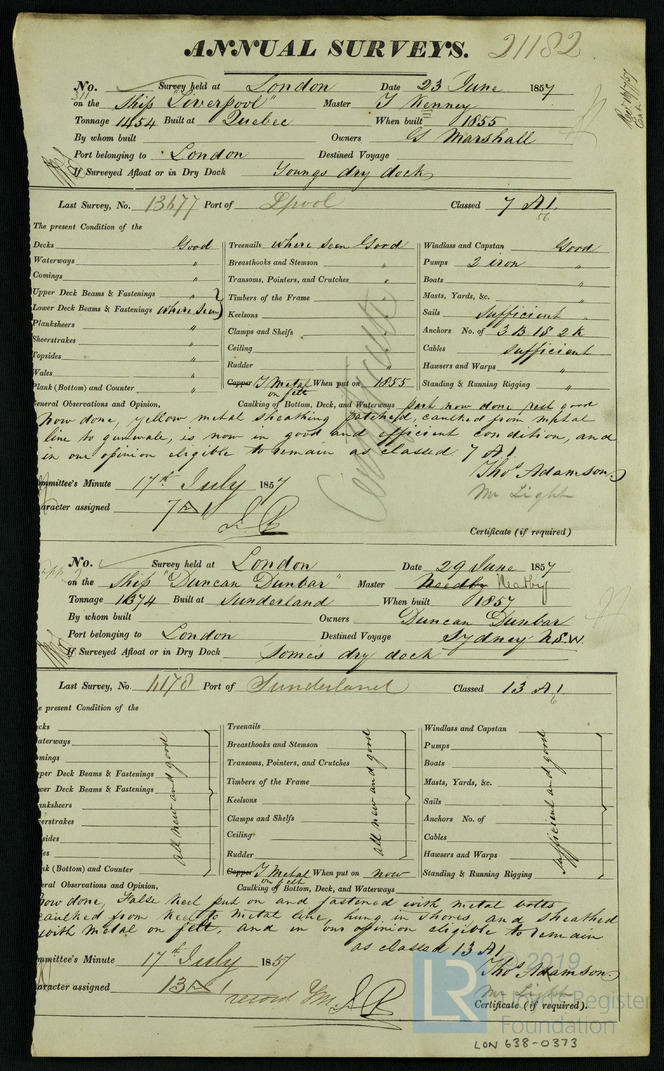 ANNUAL SURVEYS. 21182
No. Survey held at London Date 23 June 1857
on the Ship "Liverpool" Master T Kenney
Tonnage 1454 Built at Quebec When built 1855
By whom built Owners G Marshall
Port belonging to London Destined Voyage
If Surveyed Afloat or in Dry Dock Youngs dry dock
Last Survey, No. 13677 Port of Lpool Classed 7 A1.
The present Condition of the
Decks Good Treenails where seen Good Windlass and Capstan Good
Waterways " Breasthooks and Stemson " Pumps 2 iron "
Comings " Transoms, Pointers, and Crutches " Boats "
Upper Deck Beams & Fastenings " Timbers of the Frame " Masts, Yards, &c. "
Lower Deck Beams & Fastenings where seen Keelsons " Sails Sufficient "
Planksheers " Clamps and Shelfs " Anchors No. of 3 B 1 S 2 K
Sheerstrakes " Ceiling " Cables Sufficient
Topsides " Rudder " Hawsers and Warps "
Wales " Copper Y Metal on felt When put on 1855 Standing & Running Rigging "
Plank (Bottom) and Counter "
General Observations and Opinion, Caulking of Bottom, Deck, and Waterways part now done rest good
Now done, yellow metal sheathing patched, caulked from metal
line to gunwale, is now in good and efficient condition, and
in our opinion eligible to remain as classed 7 A1.
Thos Adamson
Mr Light
ommittee's Minute 17th July 1857
aracter assigned 7 A 1
Certificate (if required)
No. Survey held at London Date 29 June 1857
on the Ship "Duncan Dunbar" Master Needby Neatby
Tonnage 1374 Built at Sunderland When built 1857
By whom built Owners Duncan Dunbar
Port belonging to London Destined Voyage Sydney N.S.W.
If Surveyed Afloat or in Dry Dock Somes dry dock
Last Survey, No. 4178 Port of Sunderland Classed 13 A1
e present Condition of the
cks Treenails Windlass and Capstan
aterways Breasthooks and Stemson Pumps
mings Transoms, Pointers, and Crutches Boats
pper Deck Beams & Fastenings Timbers of the Frame Masts, Yards, &c.
wer Deck Beams & Fastenings Keelsons Sails
anksheers Clamps and Shelfs Anchors No. of
eerstrakes Ceiling Cables
sides Rudder Hawsers and Warps
les Copper Y Metal on felt When put on now Standing & Running Rigging
nk (Bottom) and Counter
all new and good
all new and good
Sufficient and good
eral Observations and Opinion, Caulking of Bottom, Deck, and Waterways
Now done, False keel put on and fastened with metal bolts
caulked from keel to metal line, hung in shores, and sheathed
with metal on felt, and in our opinion eligible to remain
as classed 13 A1
Thos Adamson
Mr Light
mmittee's Minute 17th July 1857
aracter assigned 13 A 1
record YM
Certificate (if required).
LR
2019
Lloyd's Register
Foundation
LON 638-0373